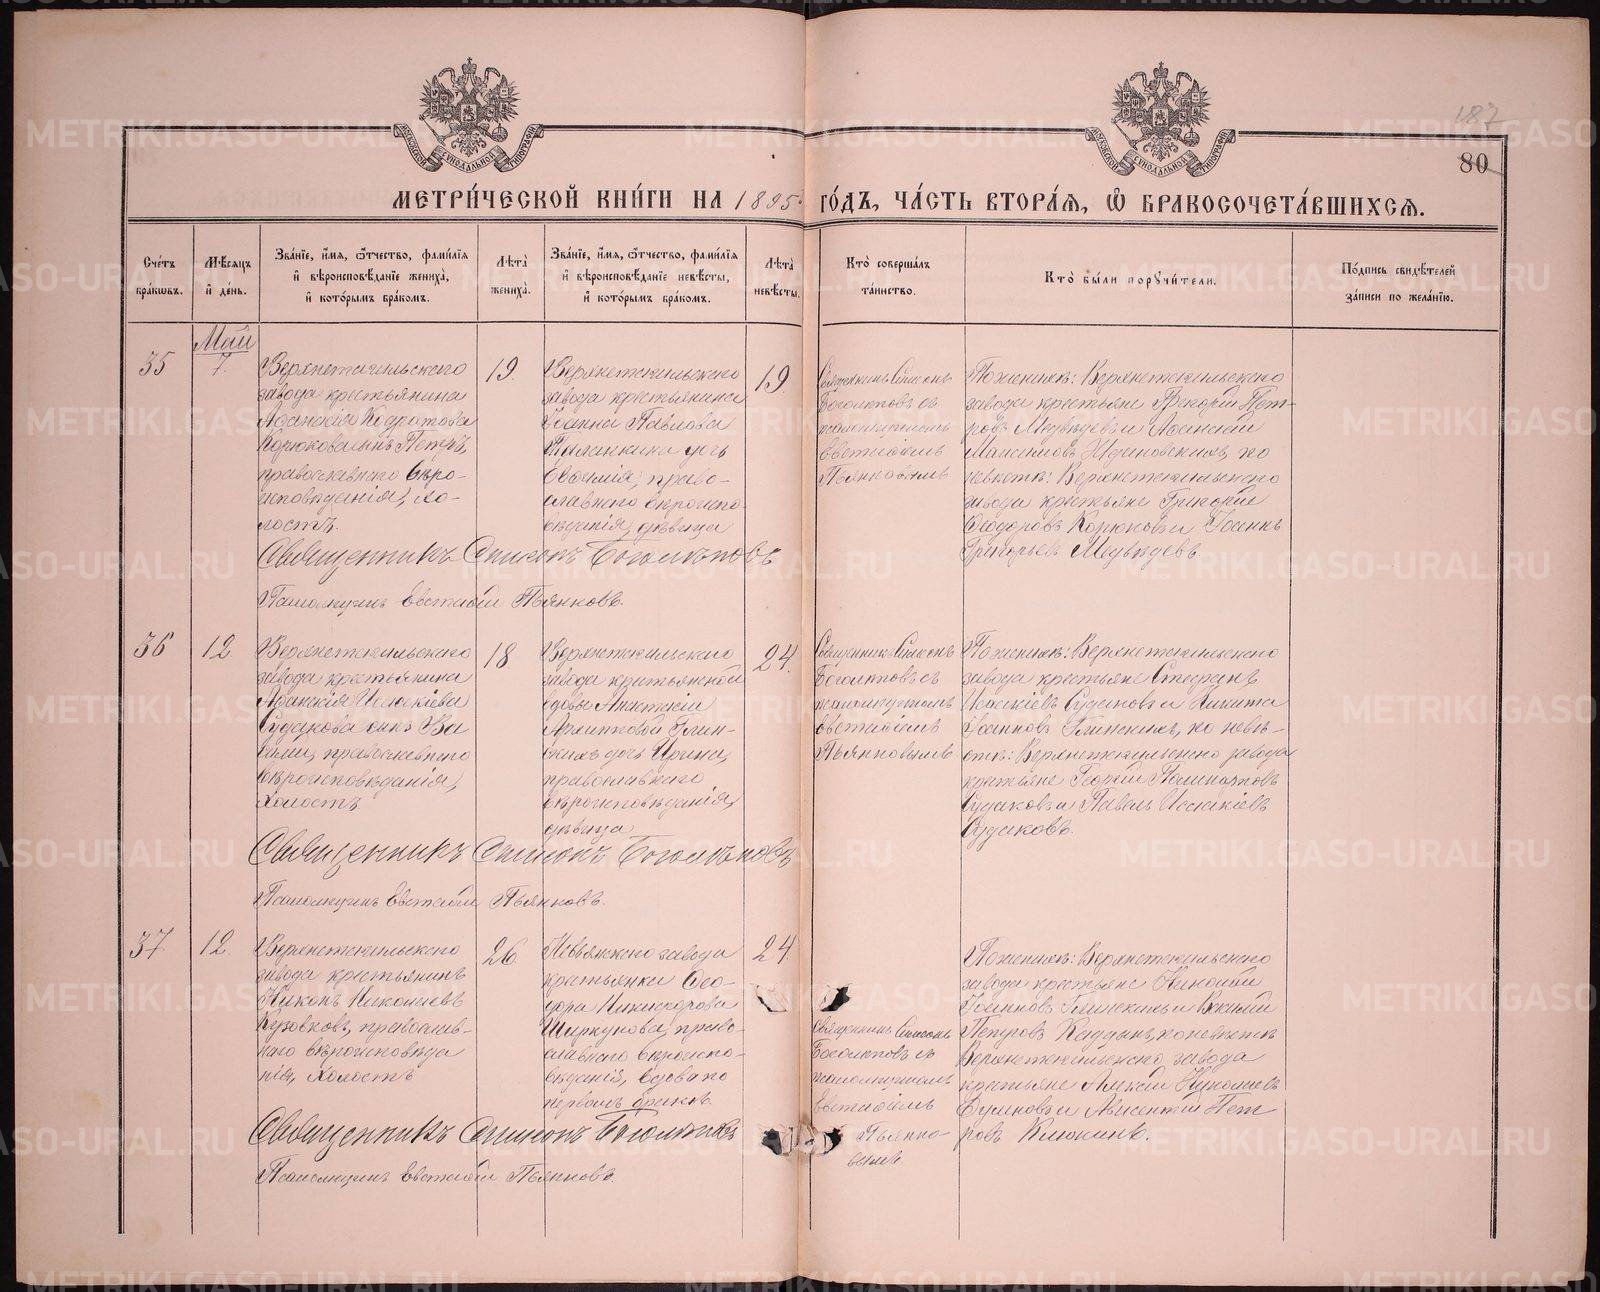 187
80
МОСКОВСКОЙ СѴНОДАЛЬНОЙ ТИПОГРАФІИ
МОСКОВСКОЙ СѴНОДАЛЬНОЙ ТИПОГРАФІИ
МЕТРИ́ЧЕСКОЙ КНИ́ГИ НА 1895 ГО́ДЪ, ЧА́СТЬ ВТОРА́Ѧ, Ѽ БРАКОСОЧЕТА́ВШИХСѦ.
Сче́тъ бра́кѡвъ.
Мѣ́сяцъ и҆ де́нь.
Зва́нїе, и҆́мя, ѻ҆́тчество, фами́лїѧ
и҆ вѣроисповѣ́данїе жениха̀,
и҆ кото́рымъ бра́комъ.
Лѣ́та жениха̀.
Зва́нїе, и҆́мя, ѻ҆́тчество, фами́лїѧ
и҆ вѣроисповѣ́данїе невѣ́сты,
и҆ кото́рымъ бра́комъ.
Лѣ́та невѣ́сты.
Кто̀ соверша́лъ
та́инство.
Кто̀ бы́ли порꙋчи́тели.
По́дпись свидѣ́телей
за́писи по жела́нїю.
Май
35
7.
Верхнетагильскаго
завода крестьянина
Афанасія Кодратова
Корюкова сынъ Петръ,
православнаго вѣро-
исповѣданія, хо-
лостъ.
19.
Верхнетагильскаго
завода крестьянина
Іоанна Павлова
дочь
Евфимія, право-
славнаго вѣроиспо-
вѣданія, дѣвица
19.
Священникъ Симеонъ
Боголѣповъ съ
псаломщикомъ
Евстафіемъ
Пьянковымъ
По женихѣ: Верхнетагильскаго
завода крестьяне Григорій Пет-
ровъ Медвѣдевъ и Афанасій
Максимовъ по
невѣстѣ: Верхнетагильскаго
завода крестьяне Григорій
Ѳеодоровъ Корюковъ и Іоаннъ
Григорьевъ Медвѣдевъ.
Священникъ Симеонъ Боголѣповъ
Псаломщикъ Евстафій Пьянковъ.
36
12.
Верхнетагильскаго
завода крестьянина
Афанасія Исаакіева
Судакова сынъ Ва-
силій, православнаго
вѣроисповѣданія,
холостъ
18
Верхнетагильскаго
завода крестьянской
вдовы Анастасіи
Архиповой Глин-
скихъ дочь Ирина,
православнаго
вѣроисповѣданія,
дѣвица
24.
Священникъ Симеонъ
Боголѣповъ съ
псаломщикомъ
Евстафіемъ
Пьянковымъ
По женихѣ: Верхнетагильскаго
завода крестьяне Стефанъ
Исаакіевъ Судаковъ и Никита
Іоанновъ Глинскихъ, по невѣ-
стѣ: Верхнетагильскаго завода
крестьяне Георгій
Судаковъ и Павелъ Исаакіевъ
Судаковъ.
Священникъ Симеонъ Боголѣповъ
Псаломщикъ Евстафій Пьянковъ.
37.
12
Верхнетагильскаго
завода крестьянинъ
Никонъ Николаевъ
православ-
наго вѣроисповѣда
нія, холостъ
26.
Невьянскаго завода
крестьянка Ѳео-
дора Никифорова
Ширкунова, право-
славнаго вѣроиспо-
вѣданія, вдова по
первомъ бракѣ.
24.
Священникъ Симеонъ
Боголѣповъ съ
псаломщикомъ
Евстафіемъ
Пьянко-
вымъ.
По женихѣ: Верхнетагильскаго
завода крестьяне Николай
Іоанновъ Глинскихъ и Василій
Петровъ по невѣстѣ
Верхнетагильскаго завода
крестьяне Алексій Николаевъ
и Авксентій Пет
ровъ Клюкинъ.
Священникъ Симеонъ Боголѣповъ
Псаломщикъ Евстафій Пьянковъ.
METRIKI.GASO-URAL.RU